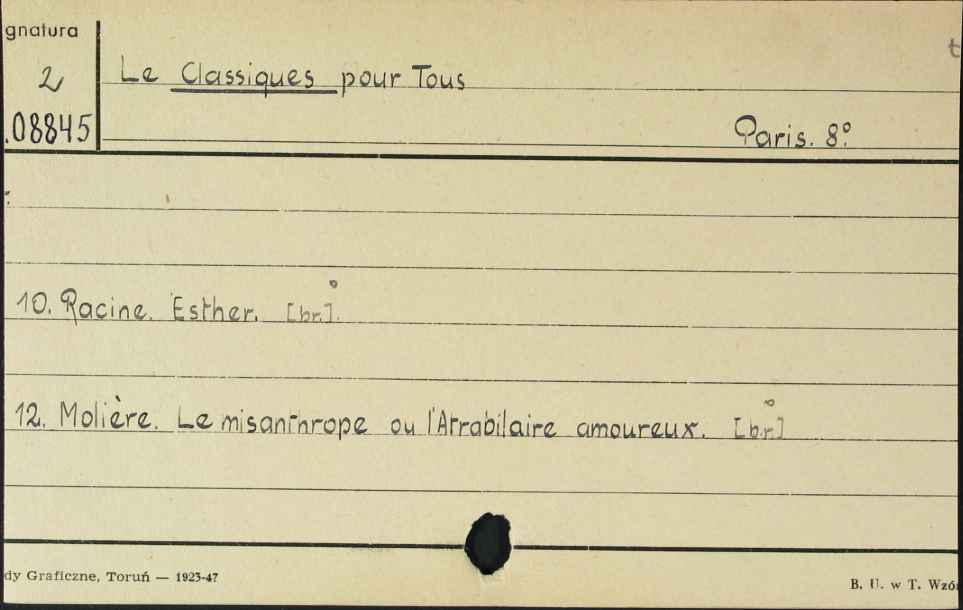 gnatura
2
Le Classiques pour Tous
.08845
Paris. 8º
t
10. Racine. Esther. [br.].
12. Molière. Le misanthrope ou l'Atrabilaire amoureux. [br]
dy Graficzne, Toruń — 1923-47
B. U. w T. Wzór